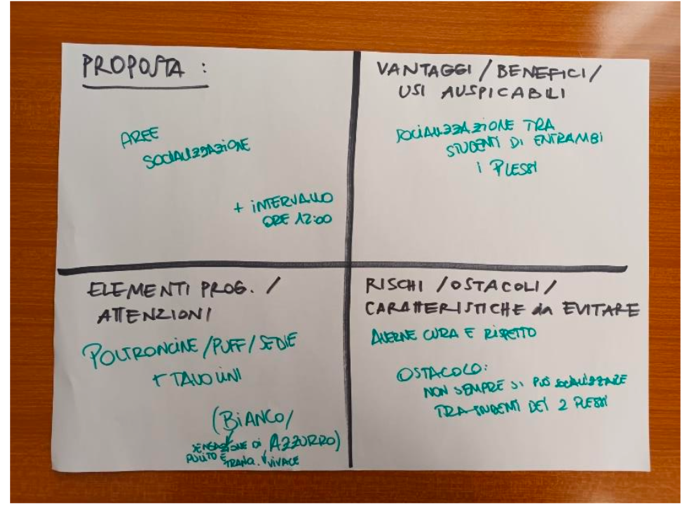 PROPOSTA :
AREE
SOCIALIZZAZIONE
+ INTERVALLO
ORE 12:00
VANTAGGI / BENEFICI /
USI AUSPICABILI
SOCIALIZZAZIONE TRA
STUDENTI DI ENTRAMBI
I PLESSI
ELEMENTI PROG. /
ATTENZIONI
POLTRONCINE / PUFF / SEDIE
+ TAVOLINI
(BIANCO /
SENSAZIONE DI AZZURRO)
PULITO E
TRANQ. VIVACE
RISCHI / OSTACOLI /
CARATTERISTICHE da EVITARE
AVERNE CURA E RISPETTO
OSTACOLO:
NON SEMPRE SI PUÒ SOCIALIZZARE
TRA STUDENTI DEI 2 PLESSI